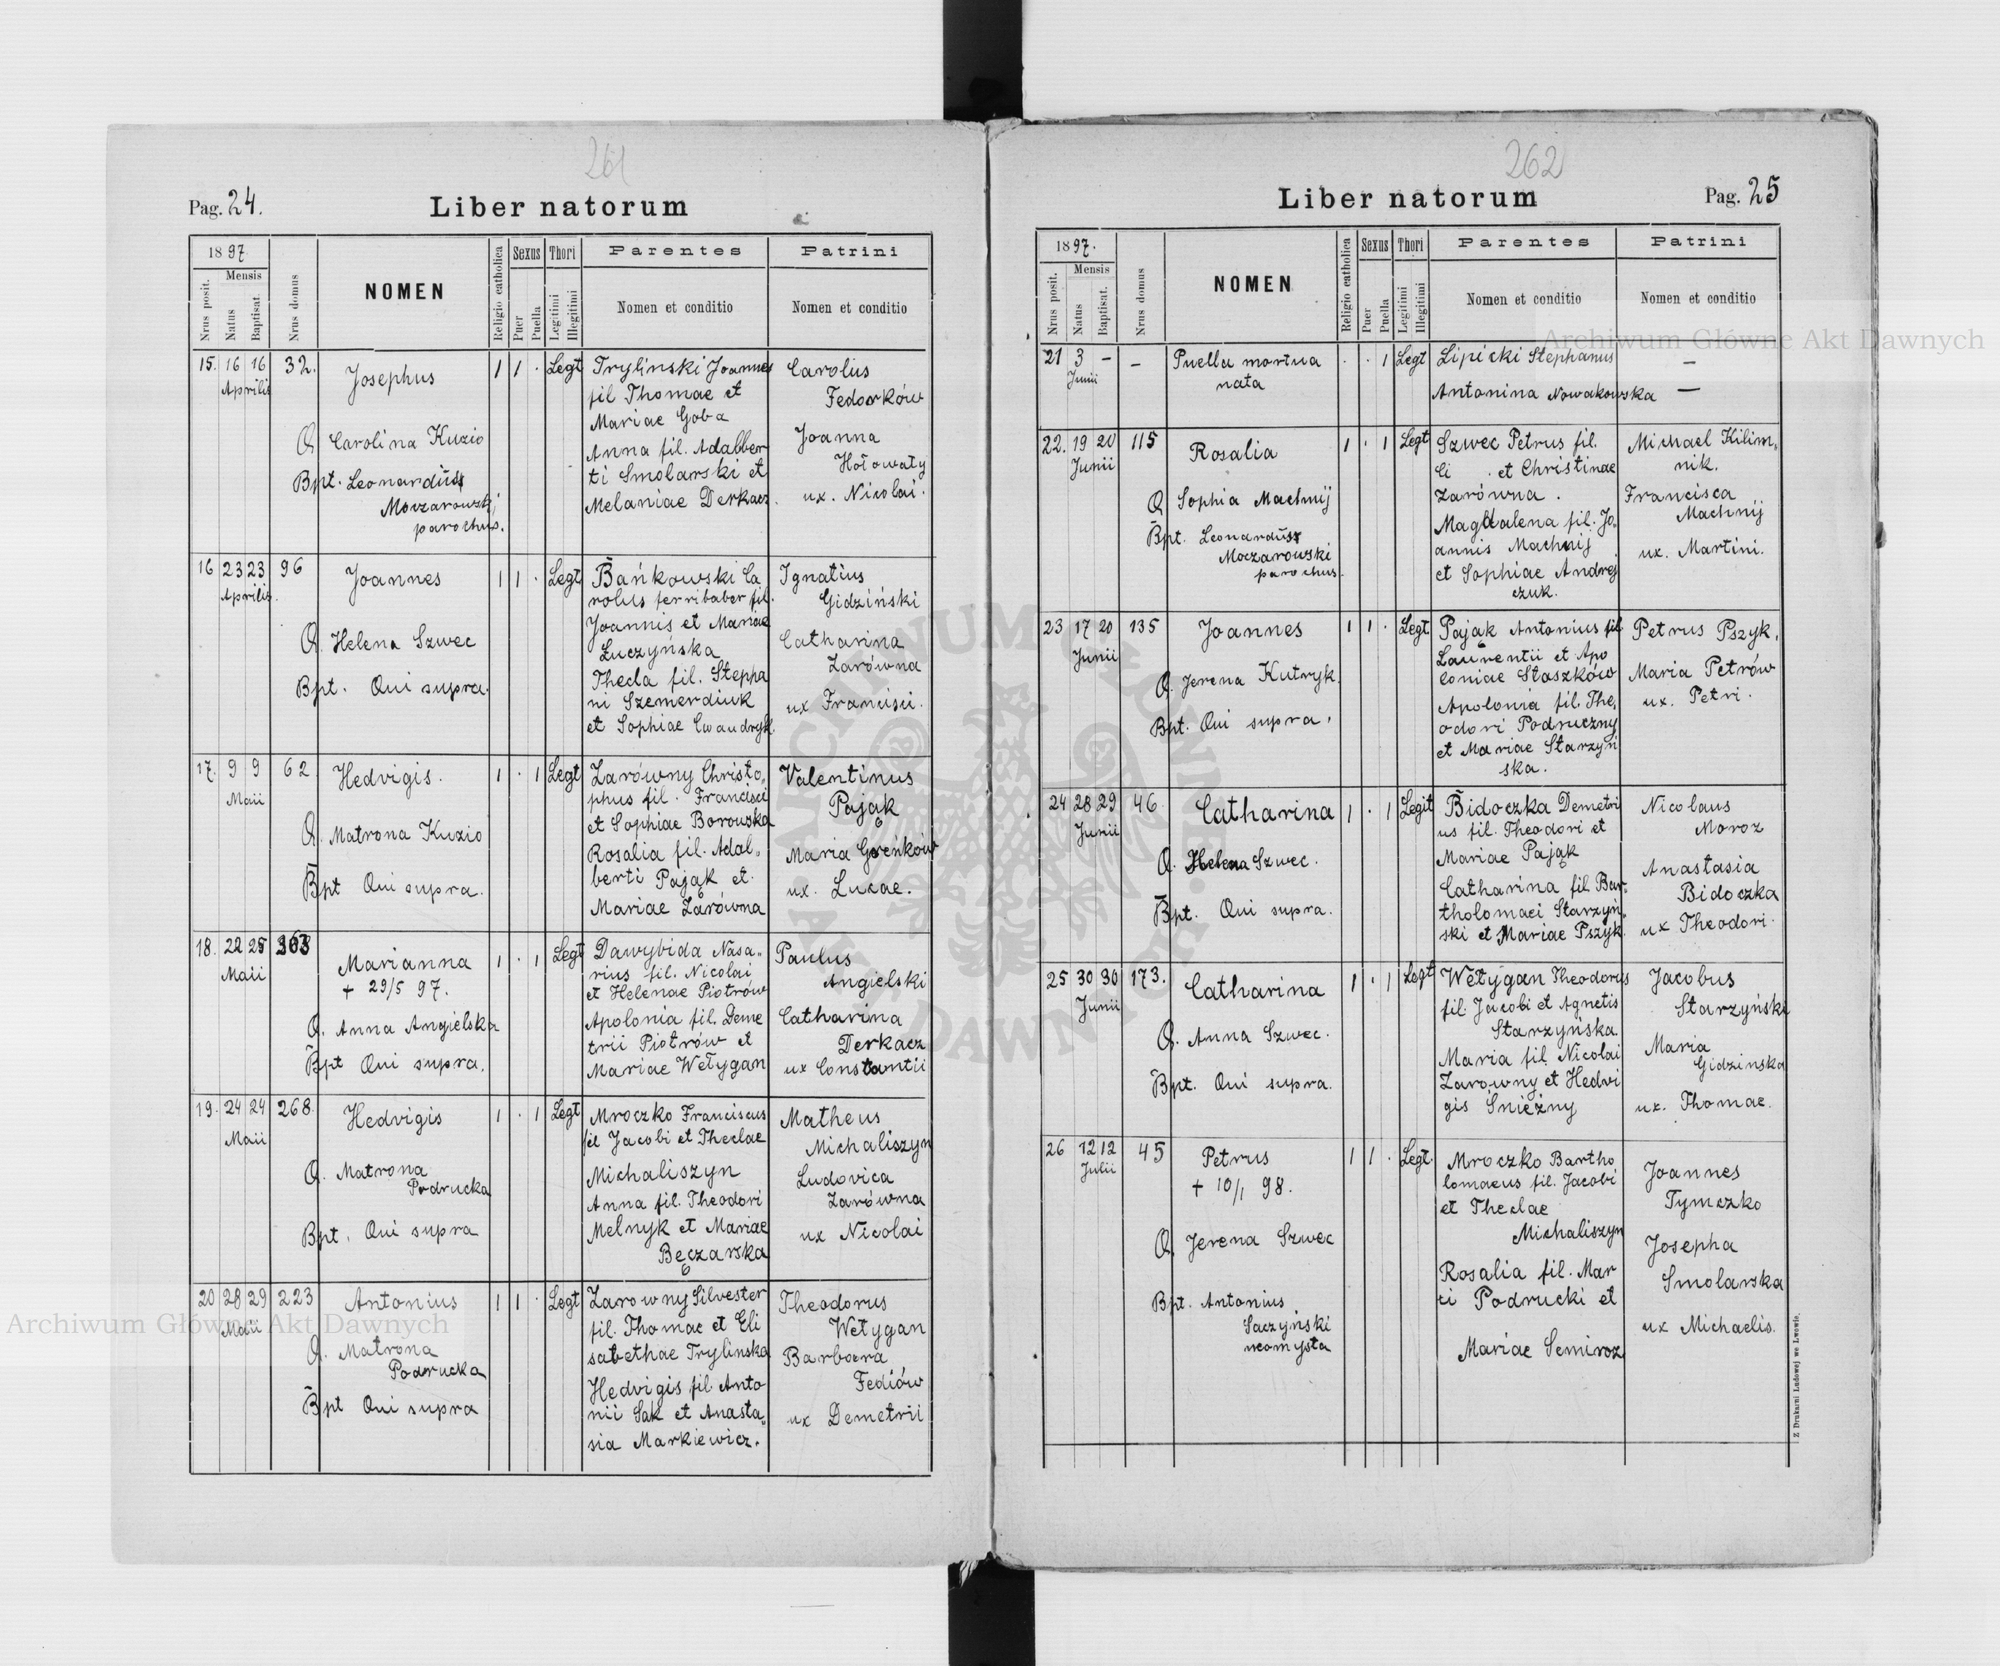 261
Pag. 24.
Liber natorum
1897
Mensis
Nrus posit.
Natus
Baptisat.
Nrus domus
NOMEN
Religio catholica
Sexus
Puer
Puella
Thori
Legitimi
Illegitimi
Parentes
Nomen et conditio
Patrini
Nomen et conditio
15. 16 16 32. Josephus 1 1 · Legt Trylinski Joannes Carolus
Aprilis fil Thomae et Fedorków
Mariae Goba
O. Carolina Kuzio Anna fil. Adalber Joanna
Bpt. Leonardus ti Smolarski et Hołowaty
Moczarowski Melaniae Derkacz. ux. Nicolai.
parochus.
16 23 23 96 Joannes 1 1 · Legt Bańkowski Ca Ignatius
Aprilis. rolus ferrifaber fil. Gidziński
Joannis et Mariae
O. Helena Szwec Łuczyńska Catharina
Thecla fil. Stepha Zarówna
Bpt. Qui supra. ni Szemerdiuk ux Francisci.
et Sophiae
17. 9 9 62 Hedvigis. 1 · 1 Legt Zarówny Christo„ Valentinus
Maii phus fil. Francisci Pająk
et Sophiae Borowska
O. Matrona Kuzio Rosalia fil. Adal„ Maria Greńków
berti Pająk et ux. Lucae.
Bpt Qui supra. Mariae Zarówna
18. 22 25 303 Marianna 1 · 1 Legt Dawybida Nasa„ Paulus
Maii + 29/5 97. rius fil. Nicolai Angielski
et Helenae Piotrów
O. Anna Angielska Apolonia fil. Deme Catharina
trii Piotrów et Derkacz
Bpt Qui supra. Mariae Wełygan ux Constantii
19. 24 24 268. Hedvigis 1 · 1 Legt Mroczko Franciscus Matheus
Maii fil Jacobi et Theclae Michaliszyn
O. Matrona Michaliszyn Ludovica
Podrucka Anna fil. Theodori Zarówna
Bpt. Qui supra Melnyk et Mariae ux Nicolai
Bęczarska
20 28 29 223 Antonius 1 1 · Legt Zarowny Silvester Theodorus
Maii fil. Thomae et Eli Wełygan
O. Matrona sabethae Trylinska Barbara
Podrucka Hedvigis fil. Anto Fediów
Bpt Qui supra nii Sak et Anasta„ ux Demetrii
sia Markiewicz.
262
Liber natorum
Pag. 25
1897.
Mensis
Nrus posit.
Natus
Baptisat.
Nrus domus
NOMEN
Religio catholica
Sexus
Puer
Puella
Thori
Legitimi
Illegitimi
Parentes
Nomen et conditio
Patrini
Nomen et conditio
21 3 – – Puella mortua · · 1 Legt Lipicki Stephanus –
Junii nata
Antonina Nowakowska –
22. 19 20 115 Rosalia 1 · 1 Legt Szwec Petrus fil. Michael Kilim„
Junii li et Christinae nik.
O Sophia Machnij Zarówna. Francisca
Magdalena fil. Jo„ Machnij
Bpt. Leonardus annis Machnij ux. Martini.
Moczarowski et Sophiae Andrej
parochus. czuk.
23 17 20 135 Joannes 1 1 · Legt Pająk Antonius fil Petrus Pszyk.
Junii Laurentii et Apo
O. Jerena Kutryk. loniae Staszków Maria Petrów
Apolonia fil. The„ ux. Petri.
Bpt. Qui supra. odori Podruczny
et Mariae Starzyń
ska.
24 28 29 46 Catharina 1 · 1 Legit Bidoczka Demetri Nicolaus
Junii us fil. Theodori et Moroz
O. Helena Szwec. Mariae Pająk Anastasia
Catharina fil. Bar„ Bidoczka
Bpt. Qui supra. tholomaei Starzyń„ ux Theodori.
ski et Mariae Pszyk.
25 30 30 173. Catharina 1 · 1 Legt Wełygan Theodorus Jacobus
Junii fil. Jacobi et Agnetis Starzyński
O. Anna Szwec. Starzyńska. Maria
Maria fil. Nicolai Gidzinska
Bpt. Qui supra. Zarowny et Hedvi ux. Thomae.
gis Śnieżny
26 12 12 45 Petrus 1 1 · Legt. Mroczko Bartho Joannes
Julii + 10/1 98. lomaeus fil. Jacobi Tymczko
et Theclae
O. Jerena Szwec Michaliszyn Josepha
Rosalia fil. Mar Smolarska
Bpt. Antonius ti Podrucki et ux Michaelis.
Saczyński
neomysta Mariae Semiroz
Z Drukarni Ludowej we Lwowie.
Archiwum Główne Akt Dawnych
Archiwum Główne Akt Dawnych
ARCHIWUM GŁÓWNE AKT DAWNYCH